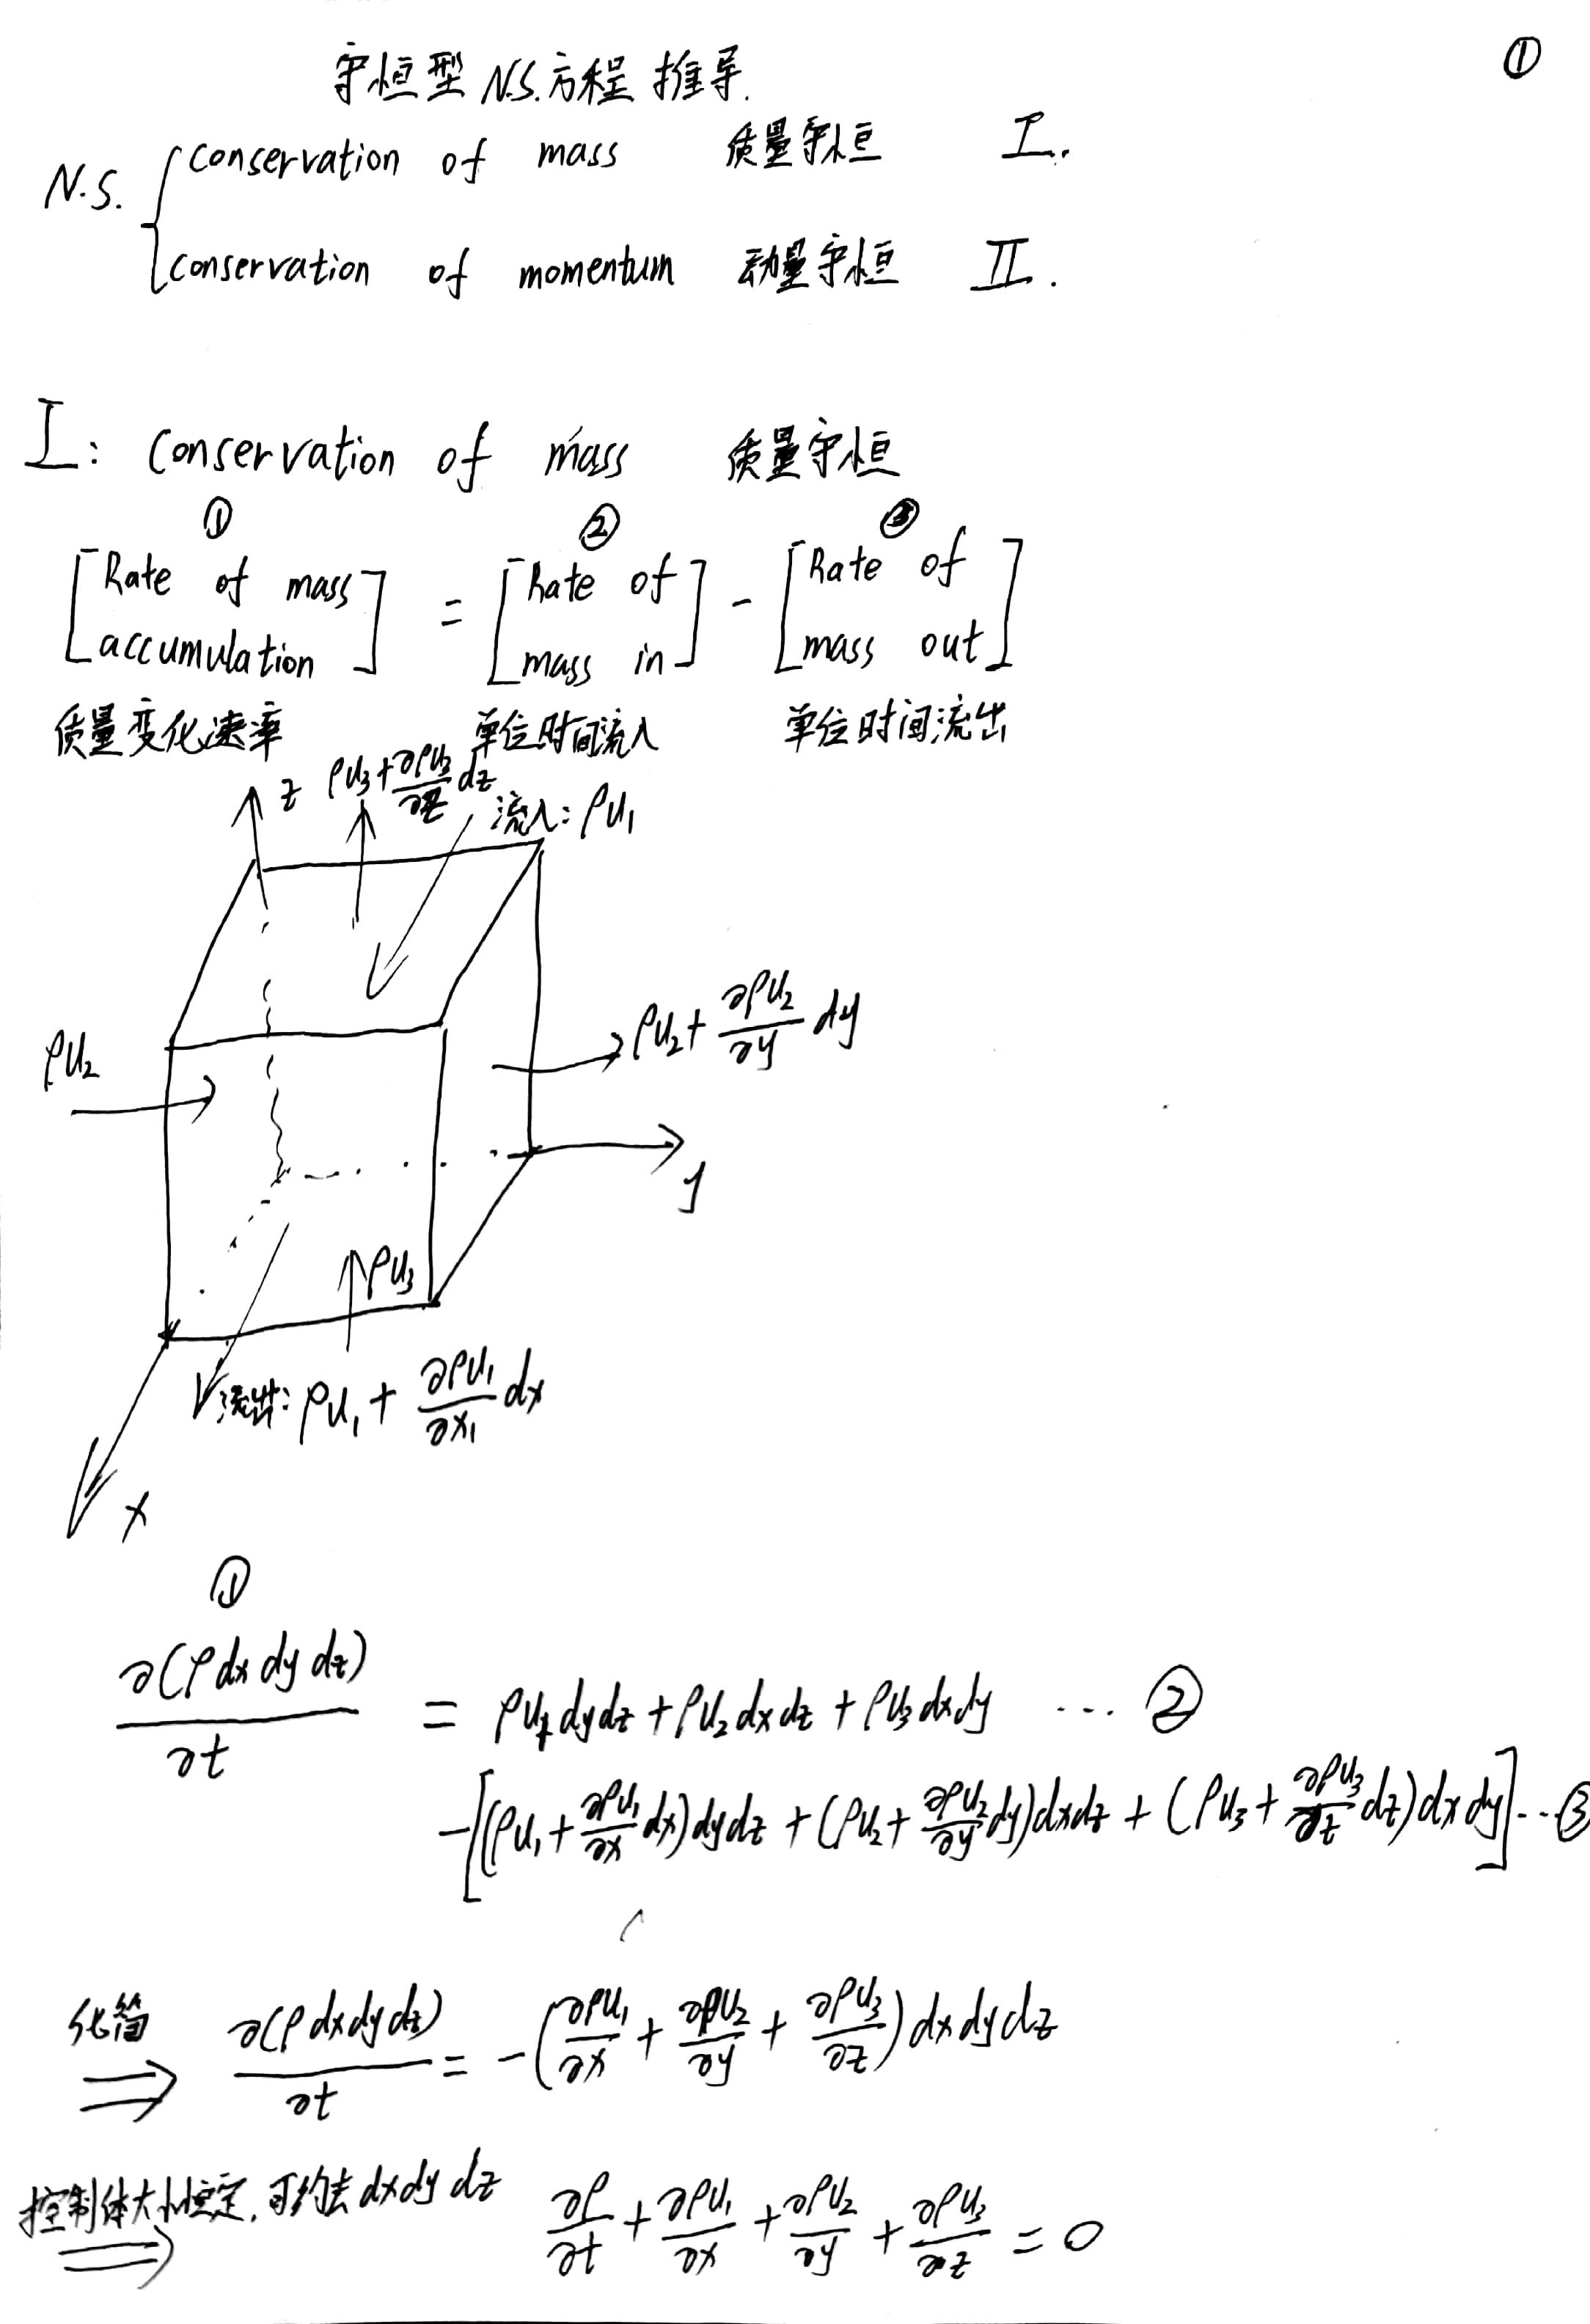 ①
守恒型 N.S.方程 推导.
N.S. { conservation of mass 质量守恒 I.
conservation of momentum 动量守恒 II.
I: Conservation of mass 质量守恒
① ② ③
[Rate of mass accumulation] = [Rate of mass in] - [Rate of mass out]
质量变化速率 单位时间流入 单位时间流出
z ρu₃+∂ρu₃/∂z dz
流入: ρu₁
ρu₂
ρu₂+ ∂ρu₂/∂y dy
y
ρu₃
流出: ρu₁ + ∂ρu₁/∂x₁ dx
x
①
∂(ρdx dy dz)/∂t = ρu₁dydz+ρu₂dxdz+ρu₃dxdy ... ②
-[(ρu₁+∂ρu₁/∂x dx)dydz+(ρu₂+∂ρu₂/∂y dy)dxdz+(ρu₃+∂ρu₃/∂z dz)dxdy]...③
化简 ⇒ ∂(ρdxdydz)/∂t = -(∂ρu₁/∂x+∂ρu₂/∂y+∂ρu₃/∂z)dxdydz
控制体大小恒定,可约去dxdydz ⇒ ∂ρ/∂t+∂ρu₁/∂x+∂ρu₂/∂y+∂ρu₃/∂z=0